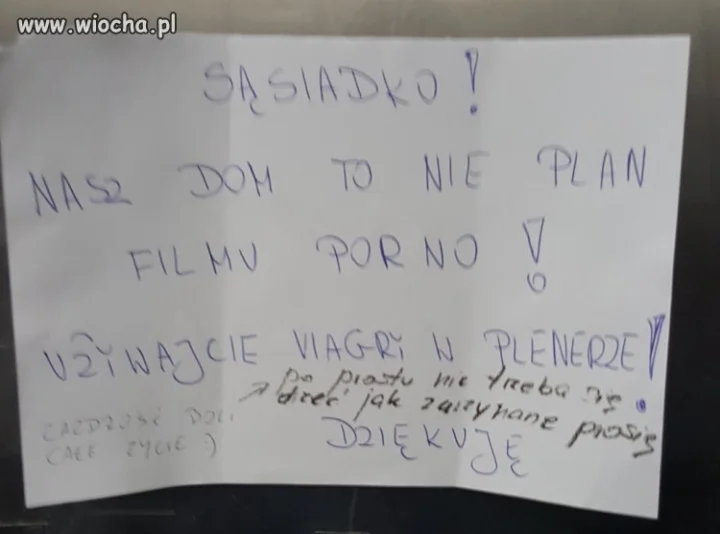 www.wiocha.pl
SĄSIADKO!
NASZ DOM TO NIE PLAN
FILMU PORNO!
UŻYWAJCIE VIAGRY W PLENERZE!
po prostu nie trzeba się
drzeć jak zarzynane prosię
ZAZDROŚĆ BOLI
CAŁE ŻYCIE :)
DZIĘKUJĘ